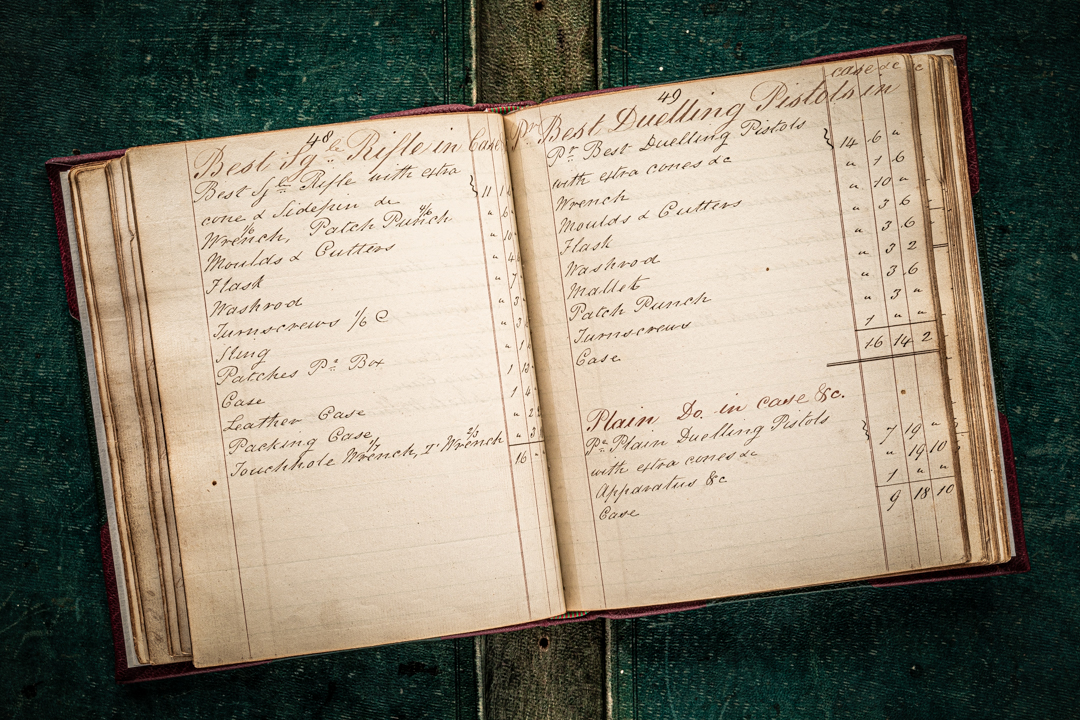 48
Best Sgle Rifle in Case
Best Sgle Rifle with extra 11
cone & Sidepin &c
Wrench, 1/6 Patch Punch 4/6 " 6
Moulds & Cutters " 10
Flask " 4
Washrod " 7
Turnscrews 1/6 C " 3
Sling " 3
Patches Pr Box " 1
Case 1
Leather Case 1 4
Packing Case " 2
Touchhole Wrench, 1/7 T Wrench 2/3 " 3
16 "
49
Pr Best Duelling Pistols in case &c
Pr Best Duelling Pistols 14 6 "
with extra cones &c
Wrench " 1 6
Moulds & Cutters " 10 "
Flask " 3 6
Washrod " 3 6
Mallet " 3 2
Patch Punch " 3 6
Turnscrews " 3 "
Case 1 " "
16 14 2
Plain Do. in case &c.
Pr Plain Duelling Pistols 7 19 "
with extra cones &c
Apparatus &c " 19 10
Case 1 " "
9 18 10